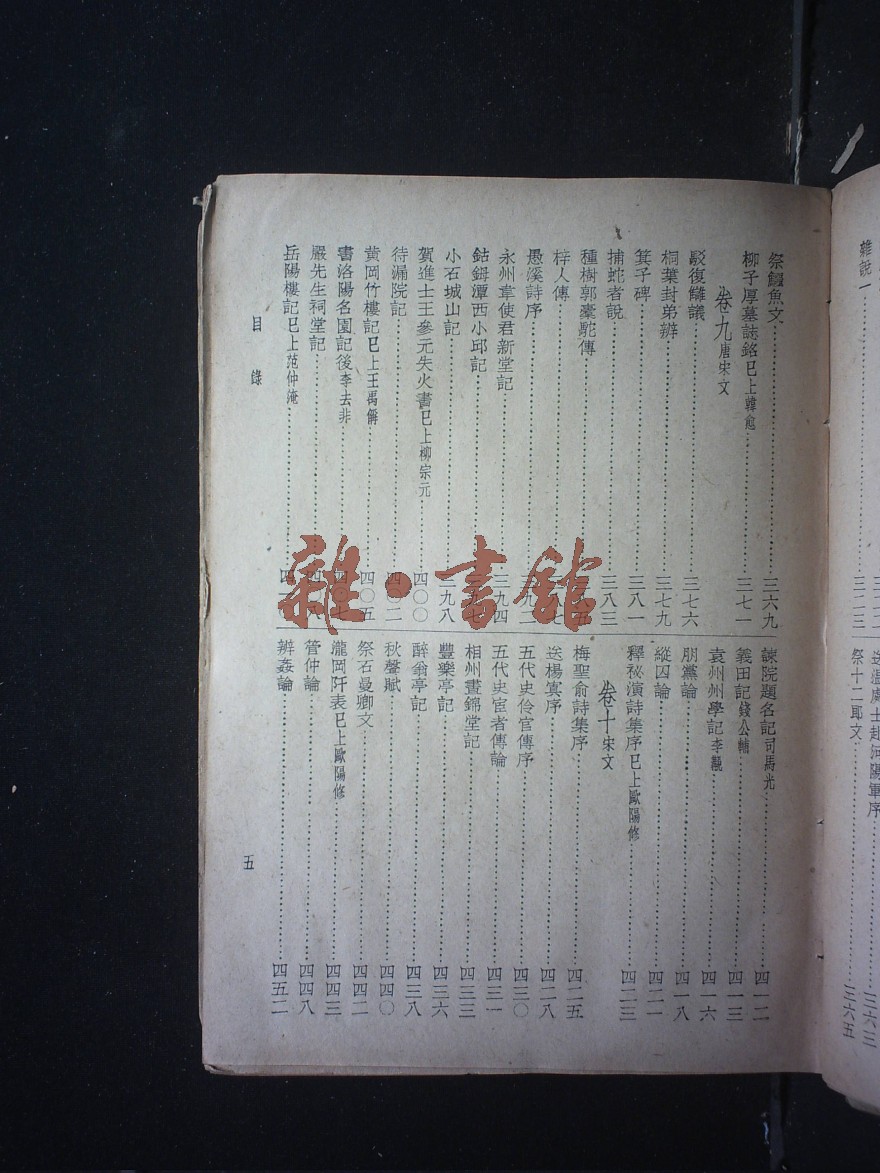 雜說一
三二三
祭十二郎文
三六五
祭鱷魚文 三六九
柳子厚墓誌銘已上韓愈 三七一
卷九唐宋文
駁復讎議 三七六
桐葉封弟辨 三七九
箕子碑 三八一
捕蛇者說 三八三
種樹郭橐駝傳
梓人傳
愚溪詩序
永州韋使君新堂記 三九四
鈷鉧潭西小邱記
小石城山記 三九八
賀進士王參元失火書已上柳宗元 四〇〇
待漏院記 四〇二
黄岡竹樓記已上王禹偁 四〇五
書洛陽名園記後李去非
嚴先生祠堂記
岳陽樓記已上范仲淹
諫院題名記司馬光 四一二
義田記錢公輔 四一三
袁州州學記李覯 四一六
朋黨論 四一八
縱囚論 四二一
釋祕演詩集序已上歐陽修 四二三
卷十宋文
梅聖俞詩集序 四二五
送楊寘序 四二八
五代史伶官傳序 四三〇
五代史宦者傳論 四三一
相州晝錦堂記 四三三
豐樂亭記 四三六
醉翁亭記 四三八
秋聲賦 四四〇
祭石曼卿文 四四二
瀧岡阡表已上歐陽修 四四三
管仲論 四四八
辨姦論 四五二
目錄
五
雜·書館